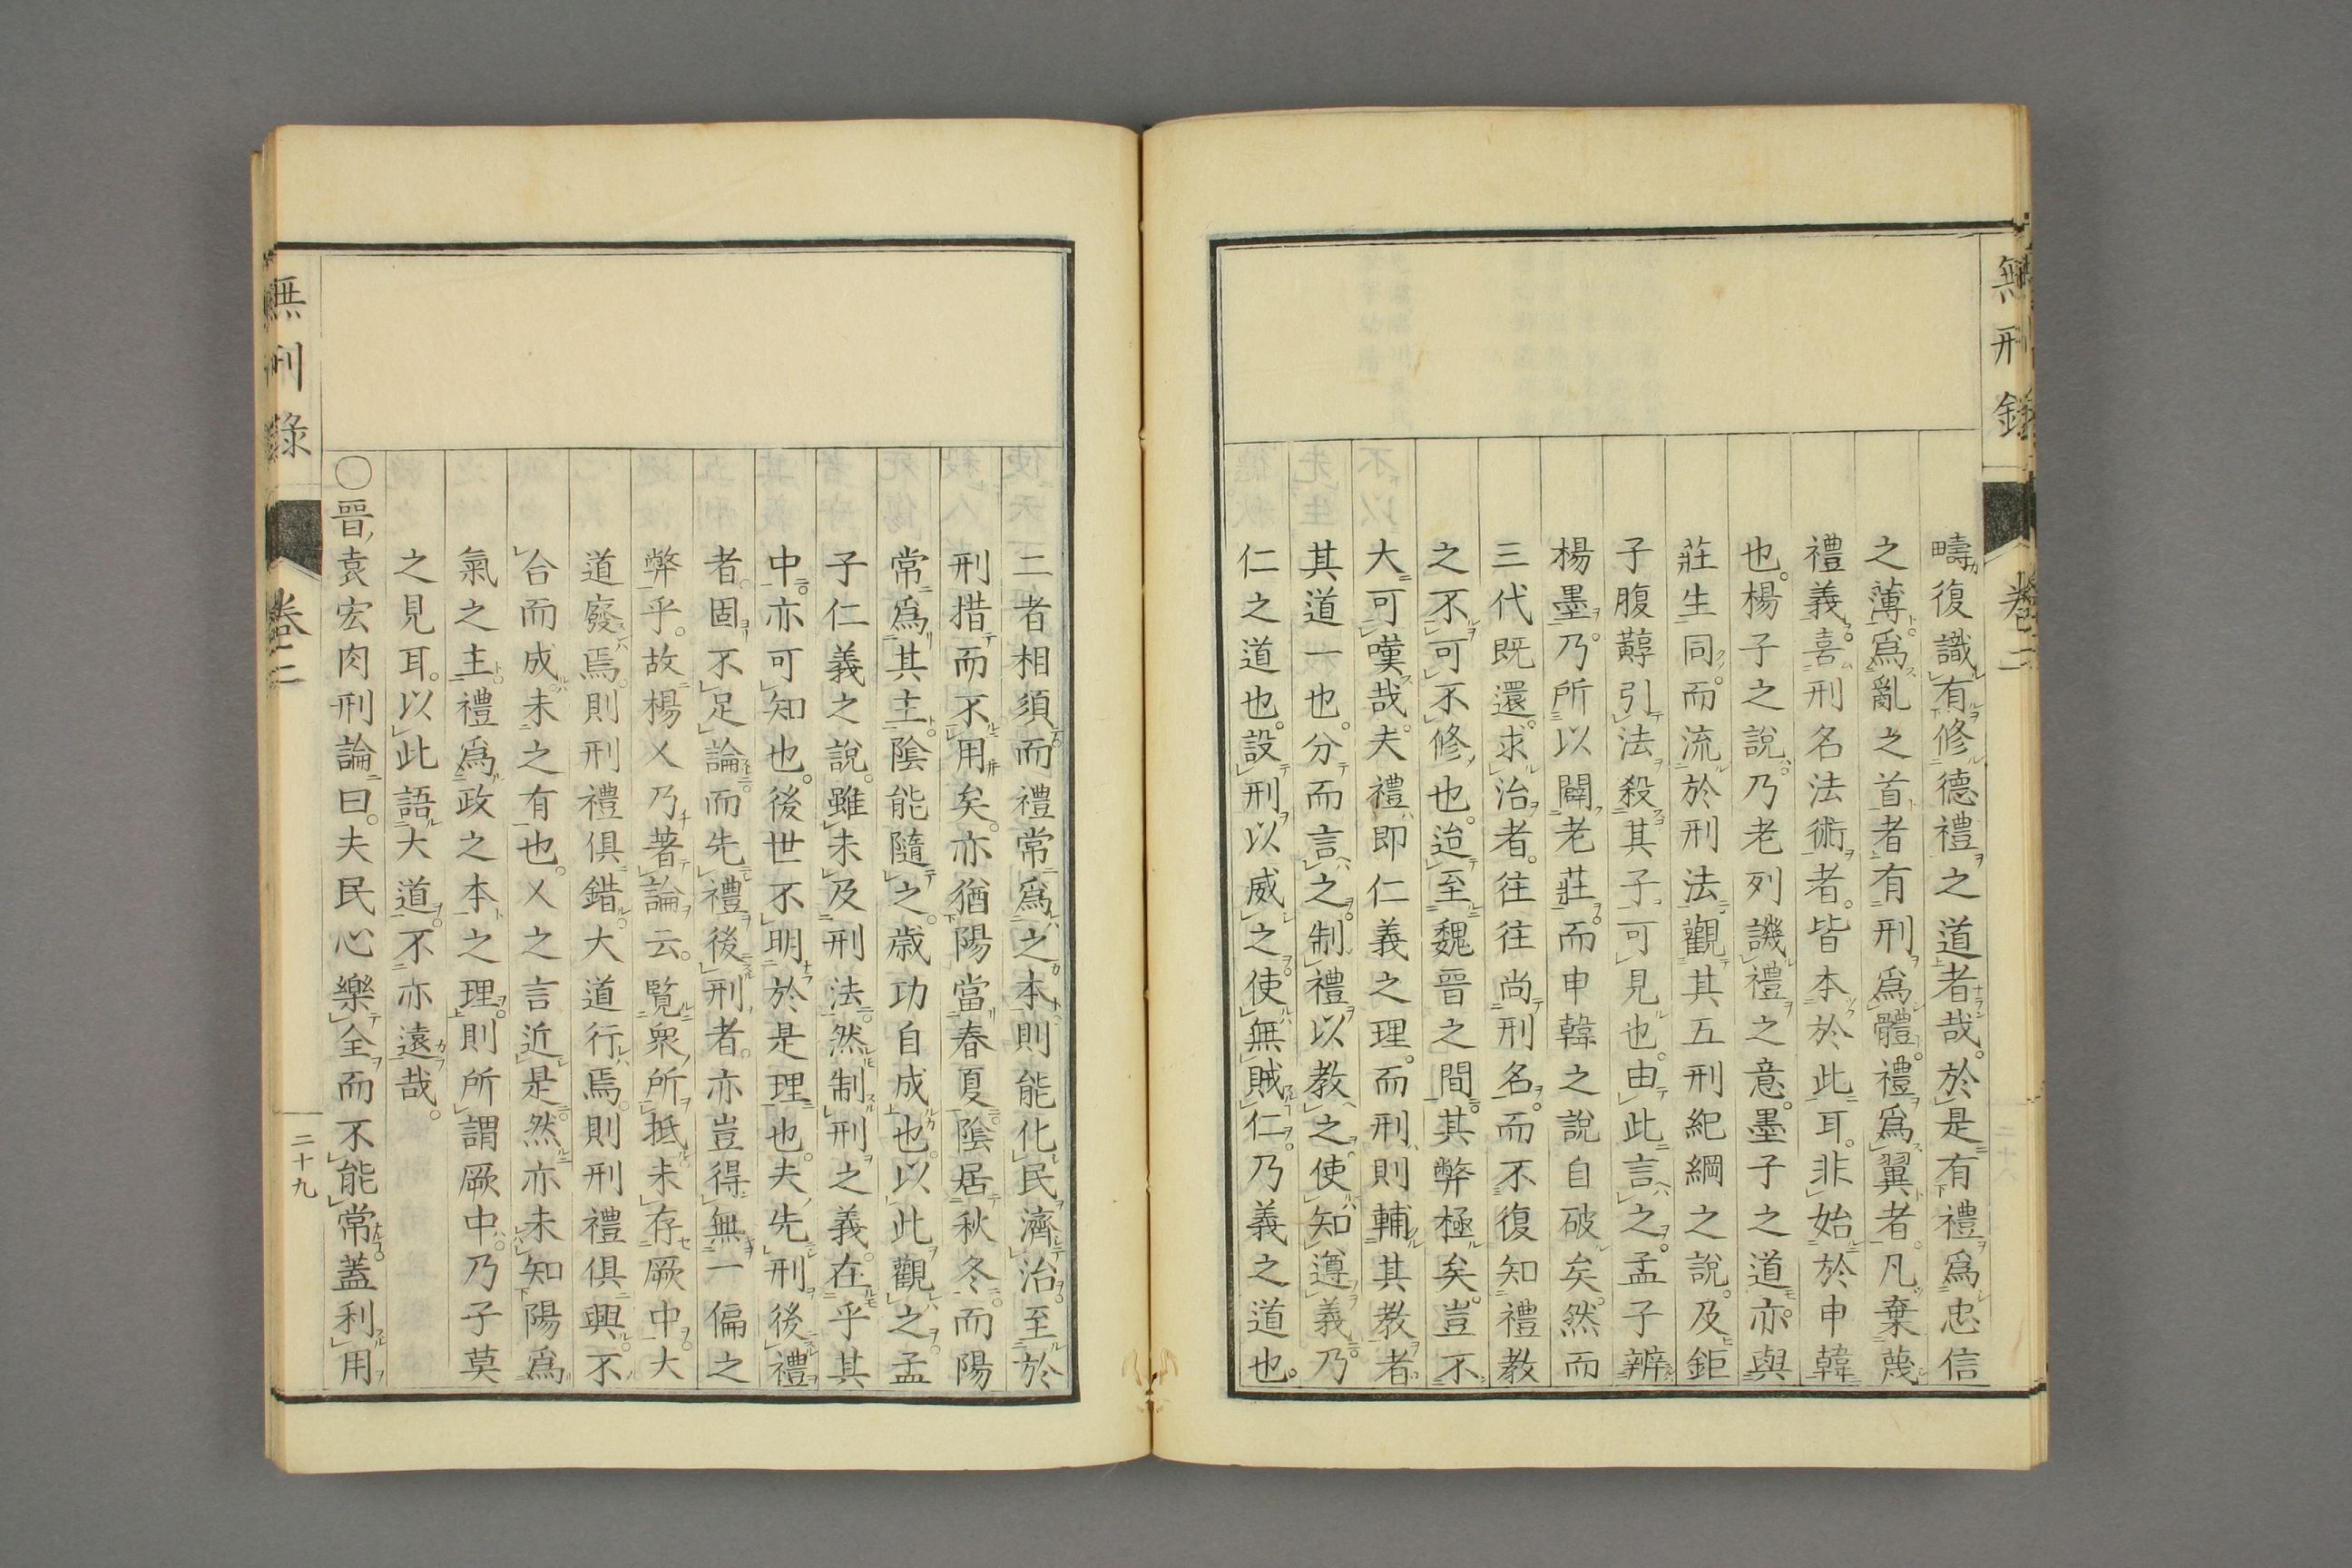 無刑録
卷二
疇復識有修德禮之道者哉。於是有禮爲忠信
之薄。爲亂之首者有刑爲體。禮爲翼者。凡棄蔑
禮義。喜刑名法術者。皆本於此耳。非始於申韓
也。楊子之說。乃老列譏禮之意。墨子之道。亦與
莊生同。而流於刑法。觀其五刑紀綱之說。及鉅
子腹䵍引法殺其子。可見也。由此言之。孟子辨
楊墨。乃所以闢老莊。而申韓之說自破矣。然而
三代既還。求治者。往往尚刑名。而不復知禮教
之不可不修也。迨至魏晉之間。其弊極矣。豈不
大可嘆哉。夫禮即仁義之理。而刑則輔其教者
其道一也。分而言之。制禮以教之。使知遵義。乃
仁之道也。設刑以威之。使無賊仁。乃義之道也。
二者相須。而禮常爲之本。則能化民濟治。至於
刑措而不用矣。亦猶陽當春夏。陰居秋冬。而陽
常爲其主。陰能隨之。歲功自成也。以此觀之。孟
子仁義之說。雖未及刑法。然制刑之義。在乎其
中。亦可知也。後世不明於是理也。夫先刑後禮
者。固不足論。而先禮後刑者。亦豈得無一偏之
弊乎。故楊乂乃著論云。覽衆所抵。未存厥中。大
道廢焉。則刑禮俱錯。大道行焉。則刑禮俱興。不
合而成。未之有也。乂之言近是。然亦未知陽爲
氣之主。禮爲政之本之理。則所謂厥中。乃子莫
之見耳。以此語大道。不亦遠哉。
〇晉袁宏肉刑論曰。夫民心樂全而不能常。蓋利用
無刑録
卷二
二十九